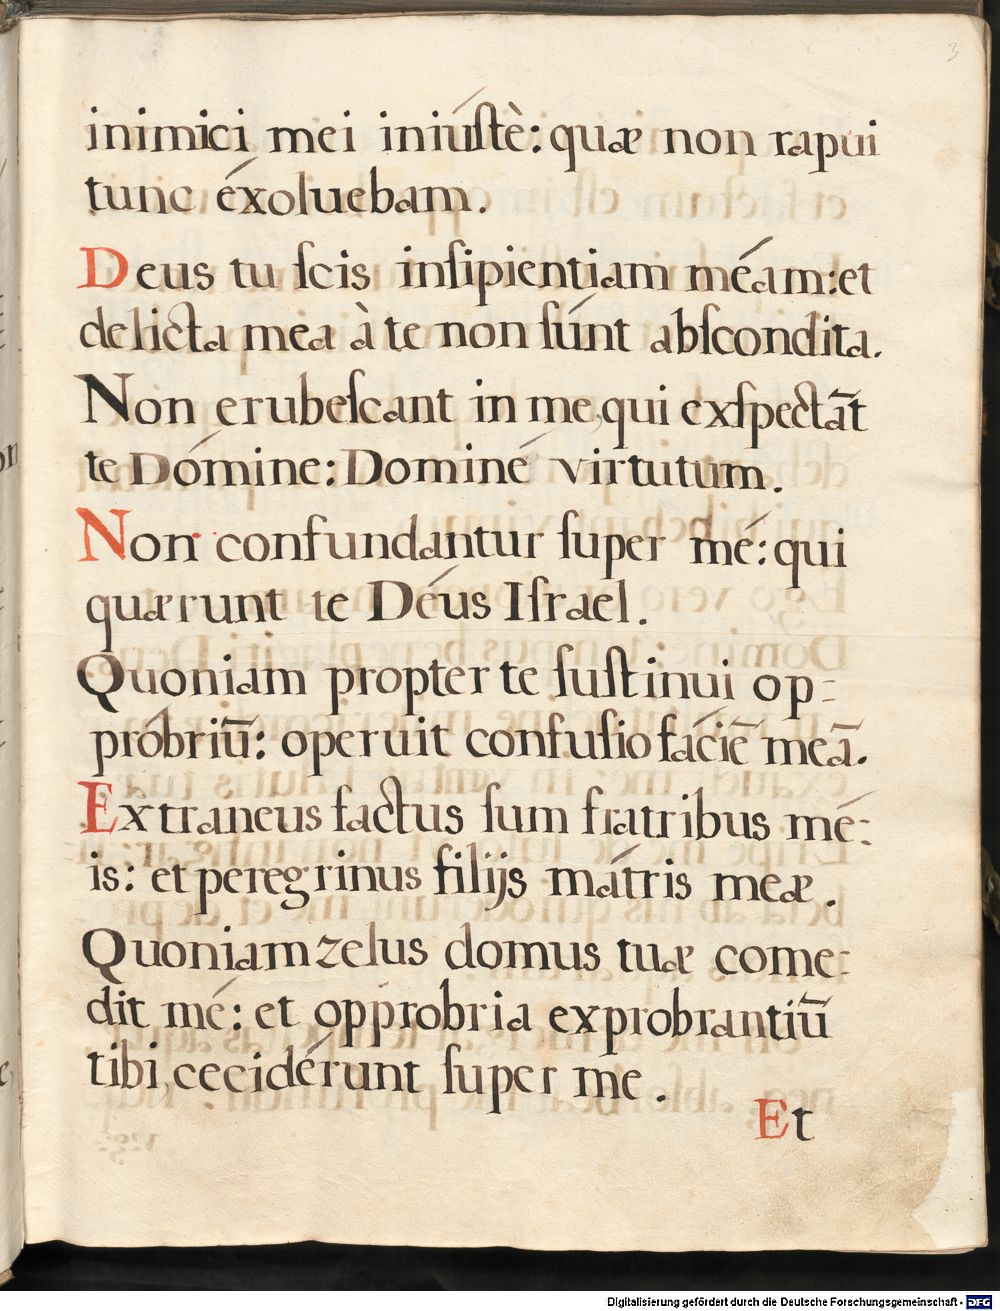 3
inimici mei iniúſtè: quæ non rapui
tunc éxoluebam.
Deus tu ſcis inſipientiam méam: et
delicta mea à te non ſúnt abſcondita.
Non erubeſcant in me, qui exſpectāt
te Dómine: Dominé virtutum.
Non confundantur ſuper mé: qui
quærunt te Déus Iſrael.
Quoniam propter te ſuſtinui op-
próbriū: operuit confuſio fáciē meā.
Extraneus factus ſum fratribus mé-
is: et peregrinus filijs mátris meæ.
Quoniam zelus domus tuæ come-
dit mé: et opprobria exprobrantiū
tibi, ceciderúnt ſuper me.
Et
Digitalisierung gefördert durch die Deutsche Forschungsgemeinschaft - DFG